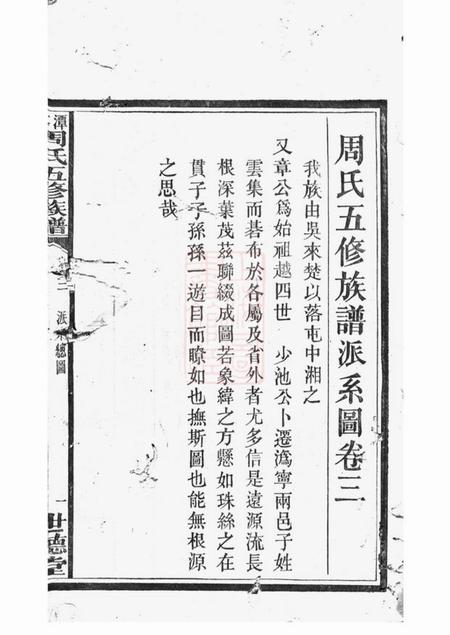 周氏五修族譜派系圖卷三
我族由吳來楚以落屯中湘之
又章公爲始祖越四世 少池公卜遷溈寧兩邑子姓
雲集而碁布於各屬及省外者尤多信是遠源流長
根深葉茂茲聯綴成圖若象緯之方懸如珠絲之在
貫子子孫孫一遊目而瞭如也撫斯圖也能無根源
之思哉
潭 周氏五修族譜
卷三 派系總圖
一 世德堂